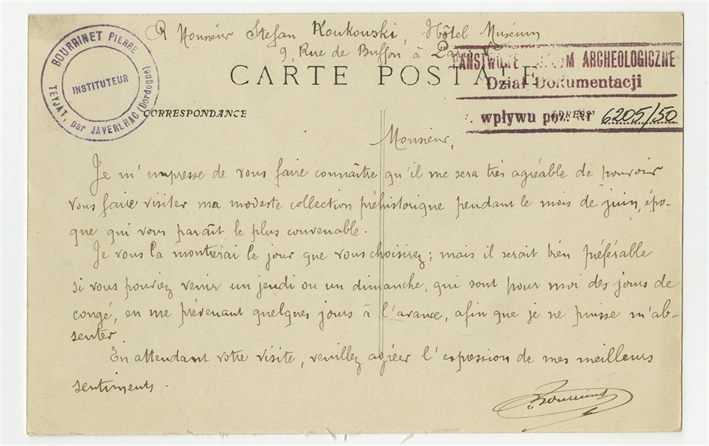 A Monsieur Stefan Koukouski, Hôtel Muséum
9, Rue de Buffon, à Paris
BOURRINET PIERRE
INSTITUTEUR
TEYJAT, par JAVERLHAC (Dordogne)
CARTE POSTALE
PAŃSTWOWE MUZEUM ARCHEOLOGICZNE
Dział Dokumentacji
wpływu poz. nr 6205/50
CORRESPONDANCE
ADRESSE
Monsieur,
Je m'empresse de vous faire connaître qu'il me sera très agréable de pouvoir
vous faire visiter ma modeste collection préhistorique pendant le mois de juin, épo-
que qui vous paraît le plus convenable.
Je vous la montrerai le jour que vous choisirez; mais il serait bien préférable
si vous pouviez venir un jeudi ou un dimanche, qui sont pour moi des jours de
congé, en me prévenant quelques jours à l'avance, afin que je ne puisse m'ab-
senter.
En attendant votre visite, veuillez agréer l'expression de mes meilleurs
sentiments.
Bourrinet